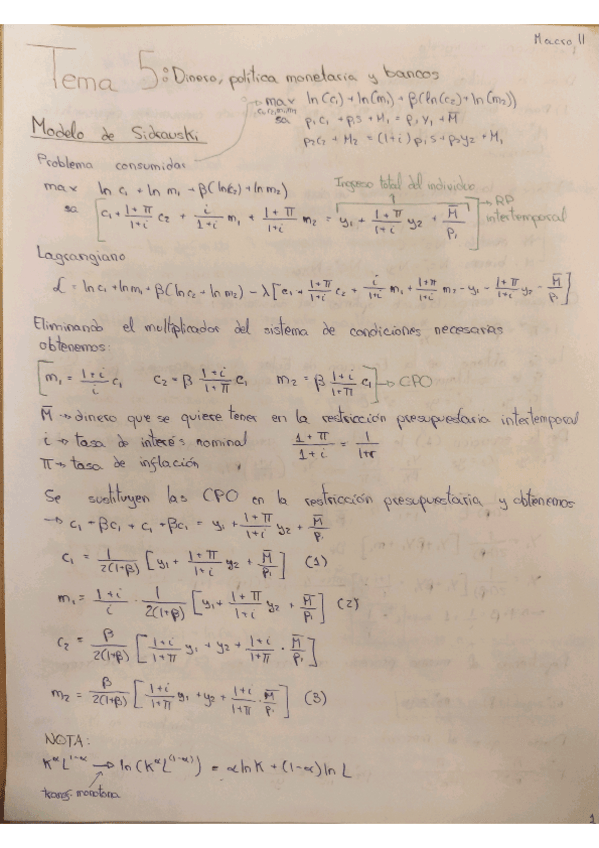 Macro II
Tema 5: Dinero, política monetaria y bancos
max ln(c₁) + ln(m₁) + β(ln(c₂) + ln(m₂))
sa p₁c₁ + p₁s + M₁ = p₁y₁ + M̄
p₂c₂ + M₂ = (1+i) p₁s + p₂y₂ + M₁
Modelo de Sidrauski
Problema consumidor
max ln c₁ + ln m₁ + β(ln c₂ + ln m₂)
Ingreso total del individuo
sa [c₁ + (1+π)/(1+i) c₂ + i/(1+i) m₁ + (1+π)/(1+i) m₂ = y₁ + (1+π)/(1+i) y₂ + M̄/p₁] → RP intertemporal
Lagrangiano
ℒ = ln c₁ + ln m₁ + β(ln c₂ + ln m₂) − λ[c₁ + (1+π)/(1+i) c₂ + i/(1+i) m₁ + (1+π)/(1+i) m₂ − y₁ − (1+π)/(1+i) y₂ − M̄/p₁]
Eliminando el multiplicador del sistema de condiciones necesarias
obtenemos:
[m₁ = (1+i)/i c₁ c₂ = β (1+i)/(1+π) c₁ m₂ = β (1+i)/(1+π) c₁] → CPO
M̄ → dinero que se quiere tener en la restricción presupuestaria intertemporal
i → tasa de interés nominal (1+π)/(1+i) = 1/(1+r)
π → tasa de inflación
Se sustituyen las CPO en la restricción presupuestaria y obtenemos
→ c₁ + βc₁ + c₁ + βc₁ = y₁ + (1+π)/(1+i) y₂ + M̄/p₁
c₁ = 1/(2(1+β)) [y₁ + (1+π)/(1+i) y₂ + M̄/p₁] (1)
m₁ = (1+i)/i · 1/(2(1+β)) [y₁ + (1+π)/(1+i) y₂ + M̄/p₁] (2)
c₂ = β/(2(1+β)) [(1+i)/(1+π) y₁ + y₂ + (1+i)/(1+π) · M̄/p₁]
m₂ = β/(2(1+β)) [(1+i)/(1+π) y₁ + y₂ + (1+i)/(1+π) · M̄/p₁] (3)
NOTA:
K^α L^(1-α) → ln(K^α L^(1-α)) = α ln K + (1-α) ln L
transf. monótona
1